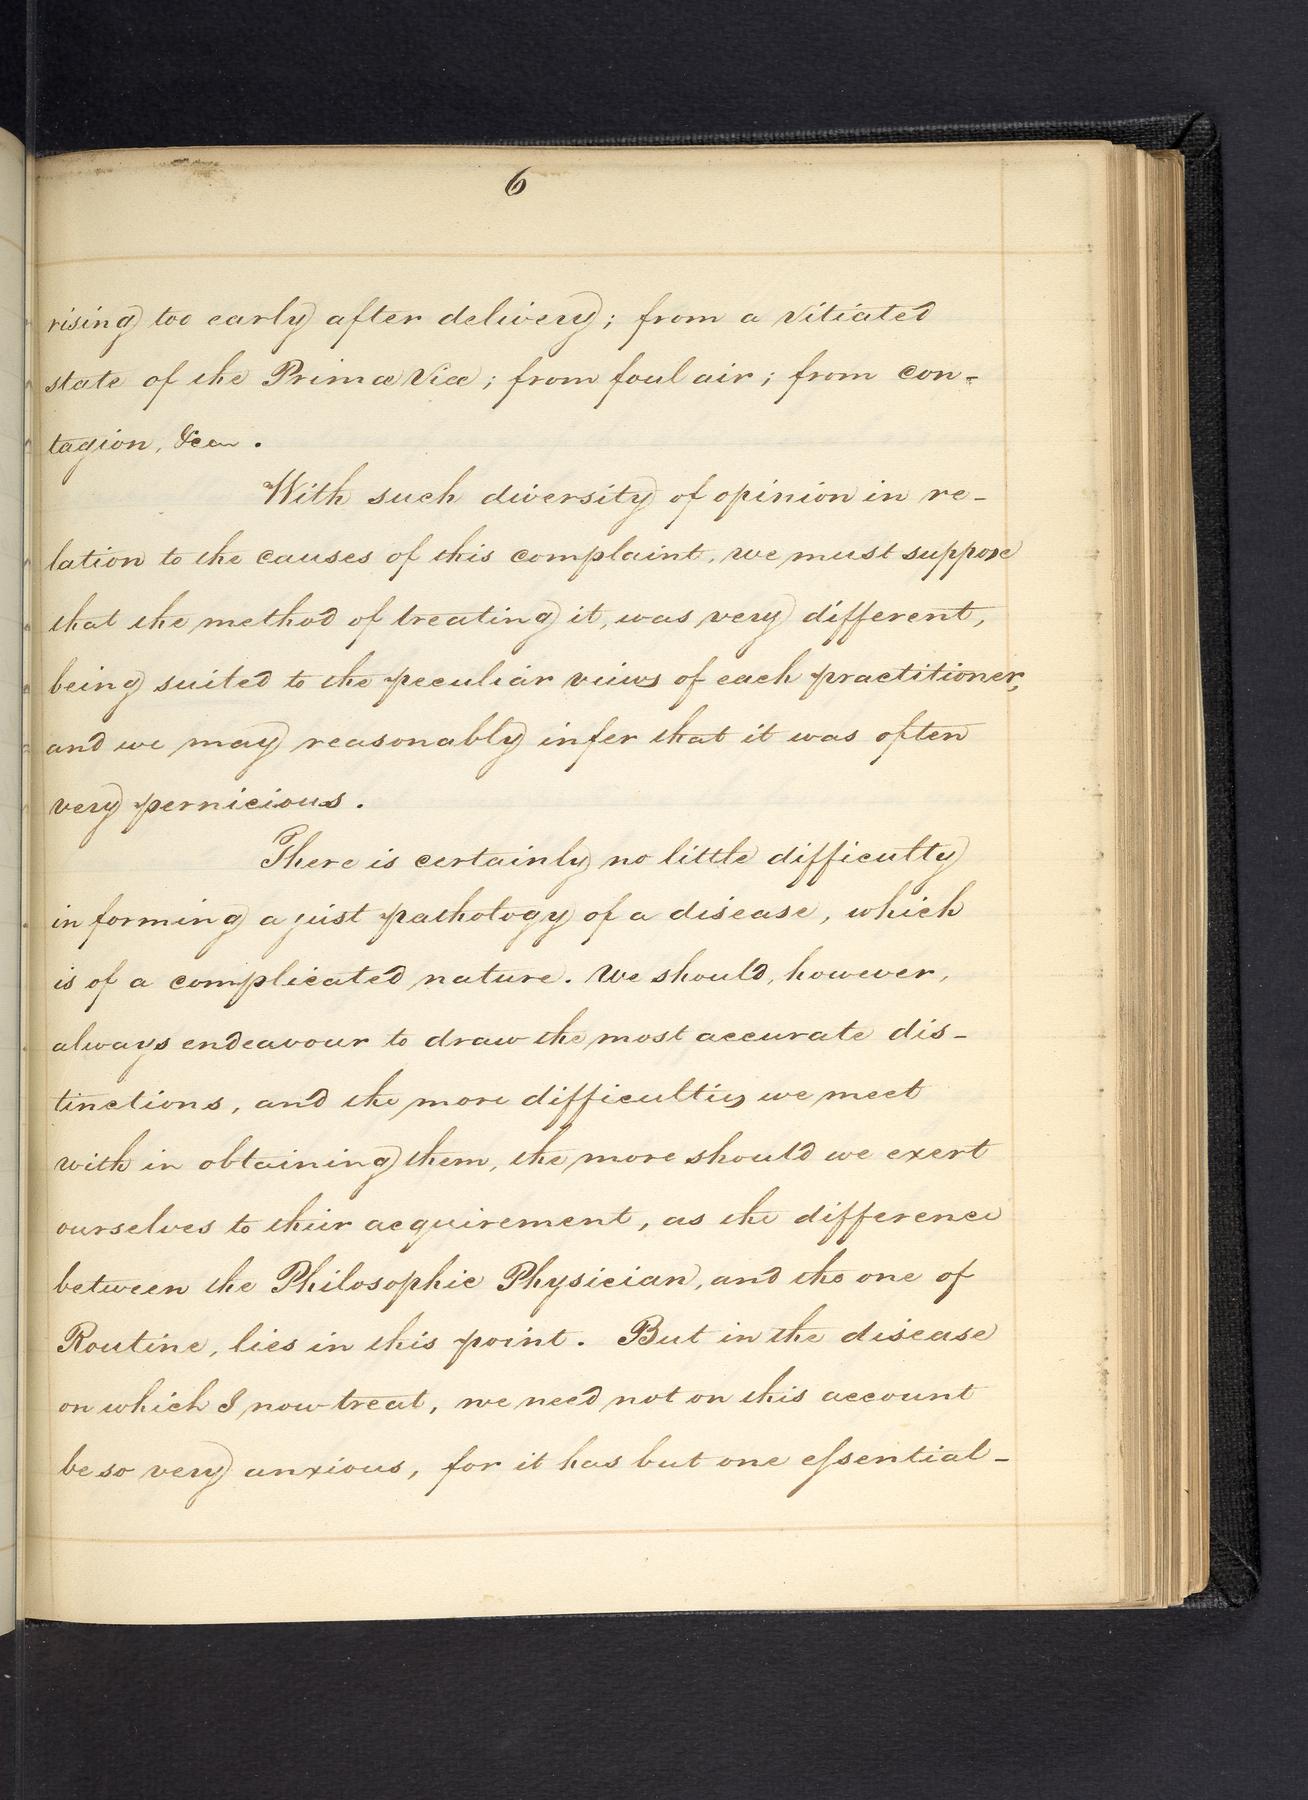 6
rising too early after delivery; from a vitiated
state of the Primæ Viæ; from foul air; from con-
tagion, &c.
With such diversity of opinion in re-
lation to the causes of this complaint, we must suppose
that the method of treating it, was very different,
being suited to the peculiar views of each practitioner,
and we may reasonably infer that it was often
very pernicious.
There is certainly no little difficulty
in forming a just pathology of a disease, which
is of a complicated nature. We should, however,
always endeavour to draw the most accurate dis-
tinctions, and the more difficulties we meet
with in obtaining them, the more should we exert
ourselves to their acquirement, as the difference
between the Philosophic Physician, and the one of
Routine, lies in this point. But in the disease
on which I now treat, we need not on this account
be so very anxious, for it has but one eſsential-